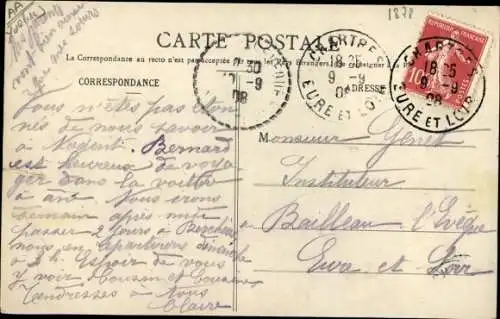 1878
CARTE POSTALE
La Correspondance au recto n'est pas acceptée par tous les Pays étrangers
CORRESPONDANCE
ADRESSE
CHARTRES
18 25
9 -9
08
EURE ET LOIR
CHARTRES
18 25
9 -9
08
EURE ET LOIR
RÉPUBLIQUE FRANÇAISE
10
9 -9
08
Vous n'êtes pas éton
nés de nous savoir
à Nogent. Bernard
est heureux de voya
ger dans la voiture
à âne. Nous irons
demain après midi
passer 2 jours à
nous en repartirons dimanche
à 2 h. Espoir de vous
y voir Cousin et Cousine
Tendresses à tous
Claire
Monsieur Genet
Instituteur
à
Bailleau l'Evêque
Eure et Loir